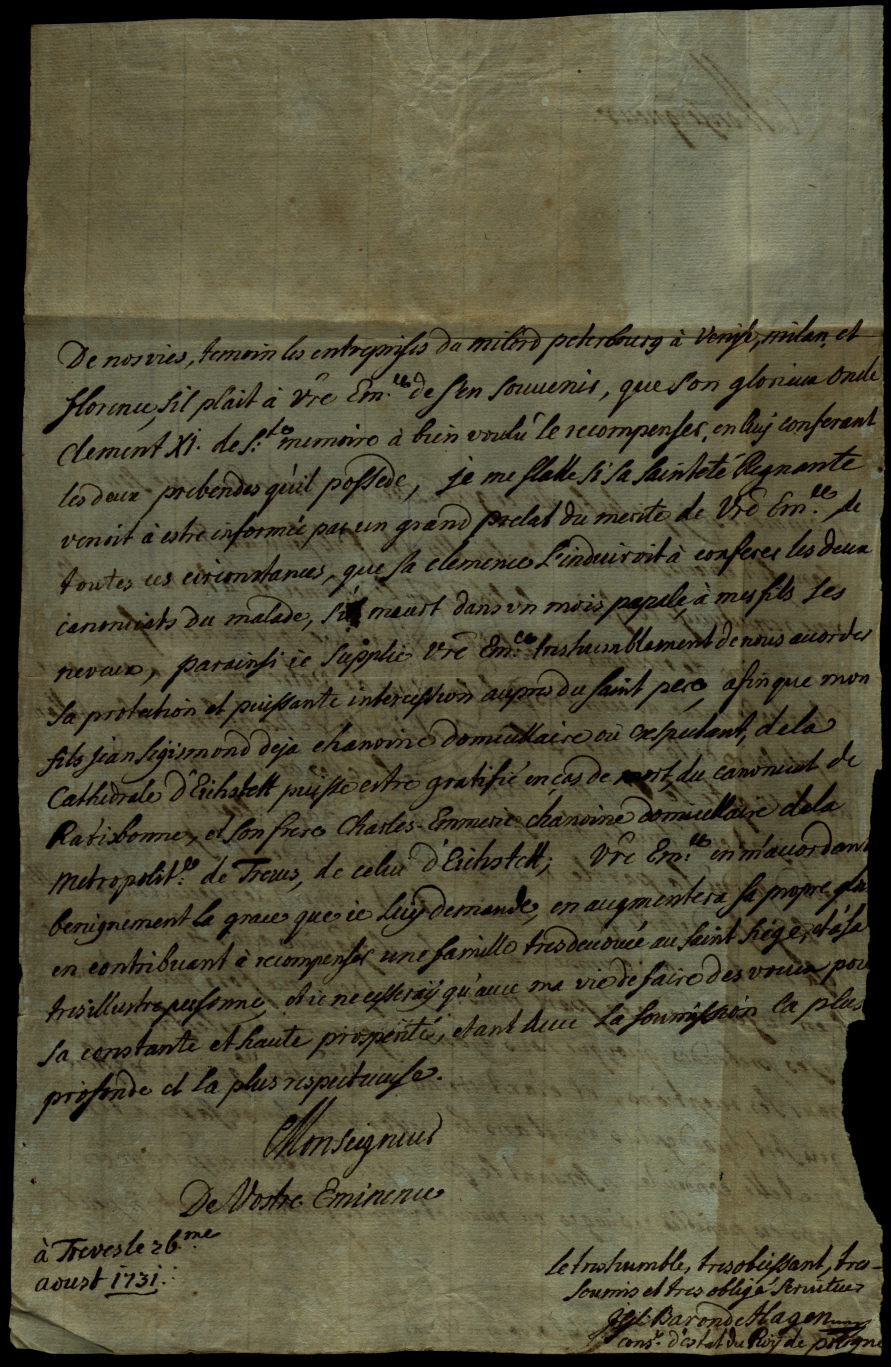 De nos vies, temoin les entreprises du milord peterbourg à Venise, milan, et
florence, s'il plait à Vre Em.ce de s'en souvenir, que son glorieux oncle
Clement XI. de S.te memoire à bien voulu le recompenser, en luy conferant
les deux prebendes qu'il possede, je me flatte si sa Sainteté Regnante
venoit à estre informée par un grand prelat du merite de Vre Em.ce de
toutes ces circonstances, que sa clemence l'induiroit à conferer les deux
canonicats du malade, s'il meurt dans un mois papale, à mes fils ses
neveux, parainsi ie supplie Vre Em.ce tres humblement de nous accorder
sa protection et puissante intercession aupres du saint pere, afin que mon
fils Jean Segismond deja chanoine domicellaire ou expectant, de la
Cathedrale d'Eichstett puisse estre gratifié en cas de mort, du canonicat de
Ratisbonne, et son frere Charles-Emmeric chanoine domicellaire de la
Metropolit.ne de Treves, de celui d'Eichstett; Vre Em.ce en m'accordant
benignement la grace que ie luy demande, en augmentera sa propre
en contribuant à recompenser une famille tres devouée au saint siége, et à sa
tres illustre personne, et ie ne cesseraÿ qu'avec ma vie de faire des vœux pou
sa constante et haute prosperité, etant avec la soumission la plus
profonde et la plus respectueuse.
Monseigneur
De Vostre Eminence
à Treves le 26.me
aoust 1731.
le tres humble, tres obeissant, tres-
soumis et tres obligé serviteur
Baron de Hagen
cons.r d'estat du Roÿ de pologne